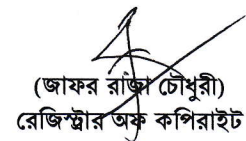 (জাফর রাজা চৌধুরী)
রেজিস্ট্রার অফ কপিরাইট